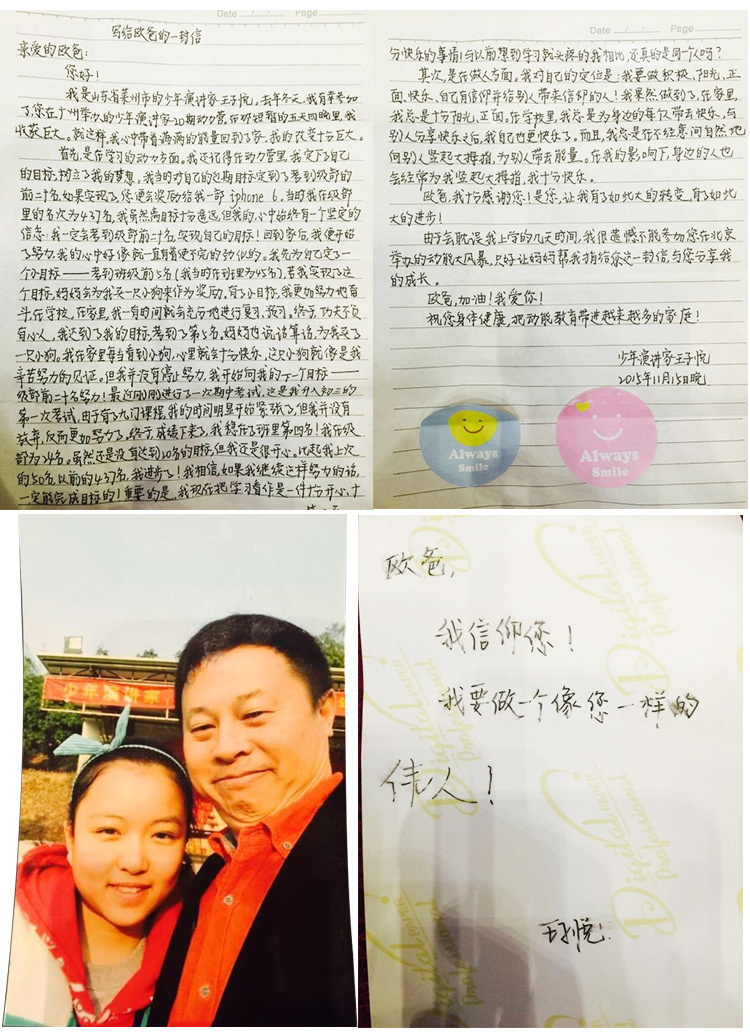 Date / / Page
写给欧爸的一封信
亲爱的欧爸:
您好!
我是山东省莱州市的少年演讲家王子悦。去年冬天,我有幸参加
了您在广州举办的少年演讲家20期动力营,在那短暂的五天四晚里,我
收获巨大。就这样,我心中带着满满的能量回到了家,我的改变十分巨大。
首先,是在学习的动力方面。我还记得在动力营里,我定下自己
的目标,树立了我的梦想。我当时对自己的近期目标定到了考到级部的
前二十名,如果实现了,您便会奖励给我一部iphone 6。当时我在级部
里的名次为437名,我虽然离目标十分遥远,但我的心中始终有一个坚定的
信念:我一定会考到级部前二十名,实现自己的目标!回到家后,我便开始
了努力,我的心中好像就一直有着使不完的劲似的。我先为自己定了一
个小目标——考到班级前5名(我当时在班里为45名),若我实现了这
个目标,妈妈会为我买一只小狗来作为奖励。有了小目标,我更加努力地奋
斗在学校,在家里,我一有时间就会充分地进行复习、预习。终于,功夫不负
有心人,我达到了我的目标,考到了第5名。妈妈也说话算话,为我买了
一只小狗。我在家里每当看到小狗,心里就会十分快乐,这只小狗就像是我
辛苦努力的见证。但我并没有停止努力,我开始向我的下一个目标——
级部前二十名努力!最近刚刚进行了一次期中考试,这是我升入初三的
第一次考试,由于有了九门课程,我的时间明显开始紧张了,但我并没有
放弃,反而更加努力了。终于,成绩下来了,我稳在了班里第四名!我在级
部为24名。虽然还是没有达到20名的目标,但我还是很开心,比起我上次
的50名,以前的437名,我进步了!我相信,如果我继续这样努力的话,
一定能完成目标的!重要的是,我现在把学习看作是一件十分开心、十
Date / / Page
分快乐的事情!与以前想到学习就头疼的我相比,还真的是同一个人吗?
其次,是在做人方面。我对自己的定位是:我要做积极、阳光、正
面、快乐、自己有信仰并给别人带来信仰的人!我果然做到了,在家里,
我总是十分阳光、正面,在学校里,我总是为身边的每个人带去快乐,与
别人分享快乐之后,我自己也更快乐了。而且,我总是在不经意间自然地
向别人竖起大拇指,为别人带去能量。在我的影响下,身边的人也
会经常为我竖起大拇指,我十分快乐。
欧爸,我十分感谢您!是您,让我有了如此大的转变,有了如此
大的进步!
由于会耽误我上学的几天时间,我很遗憾不能参加您在北京
举办的动能大风暴,只好让妈妈帮我捎给您这一封信,与您分享我
的成长。
欧爸,加油!我爱您!
祝您身体健康,把动能教育带进越来越多的家庭!
少年演讲家王子悦
2015年11月15日晚
Always
Smile
Always
Smile
少年演讲家
欧爸,
我信仰您!
我要做一个像您一样的
伟人!
王子悦